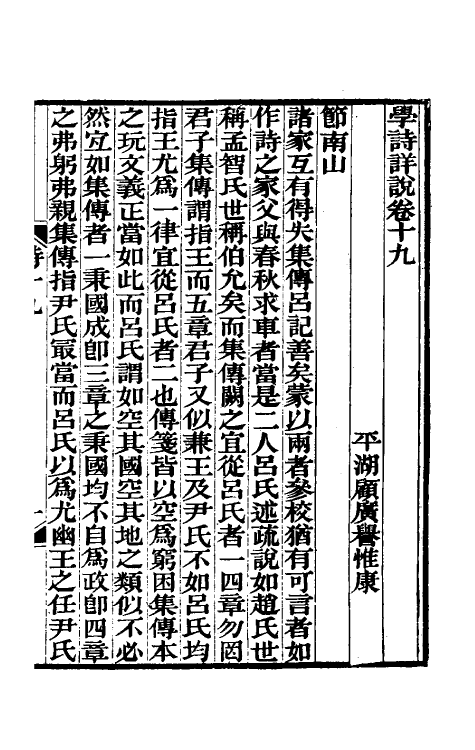 學詩詳說卷十九
平湖顧廣譽惟康
節南山
諸家互有得失集傳呂記善矣蒙以兩者參校猶有可言者如
作詩之家父與春秋求車者當是二人呂氏述疏說如趙氏世
稱孟智氏世稱伯允矣而集傳闕之宜從呂氏者一四章勿罔
君子集傳謂指王而五章君子又似兼王及尹氏不如呂氏均
指王尤爲一律宜從呂氏者二也傳箋皆以空爲窮困集傳本
之玩文義正當如此而呂氏謂如空其國空其地之類似不必
然宐如集傳者一秉國成卽三章之秉國均不自爲政卽四章
之弗躬弗親集傳指尹氏最當而呂氏以爲尤幽王之任尹氏